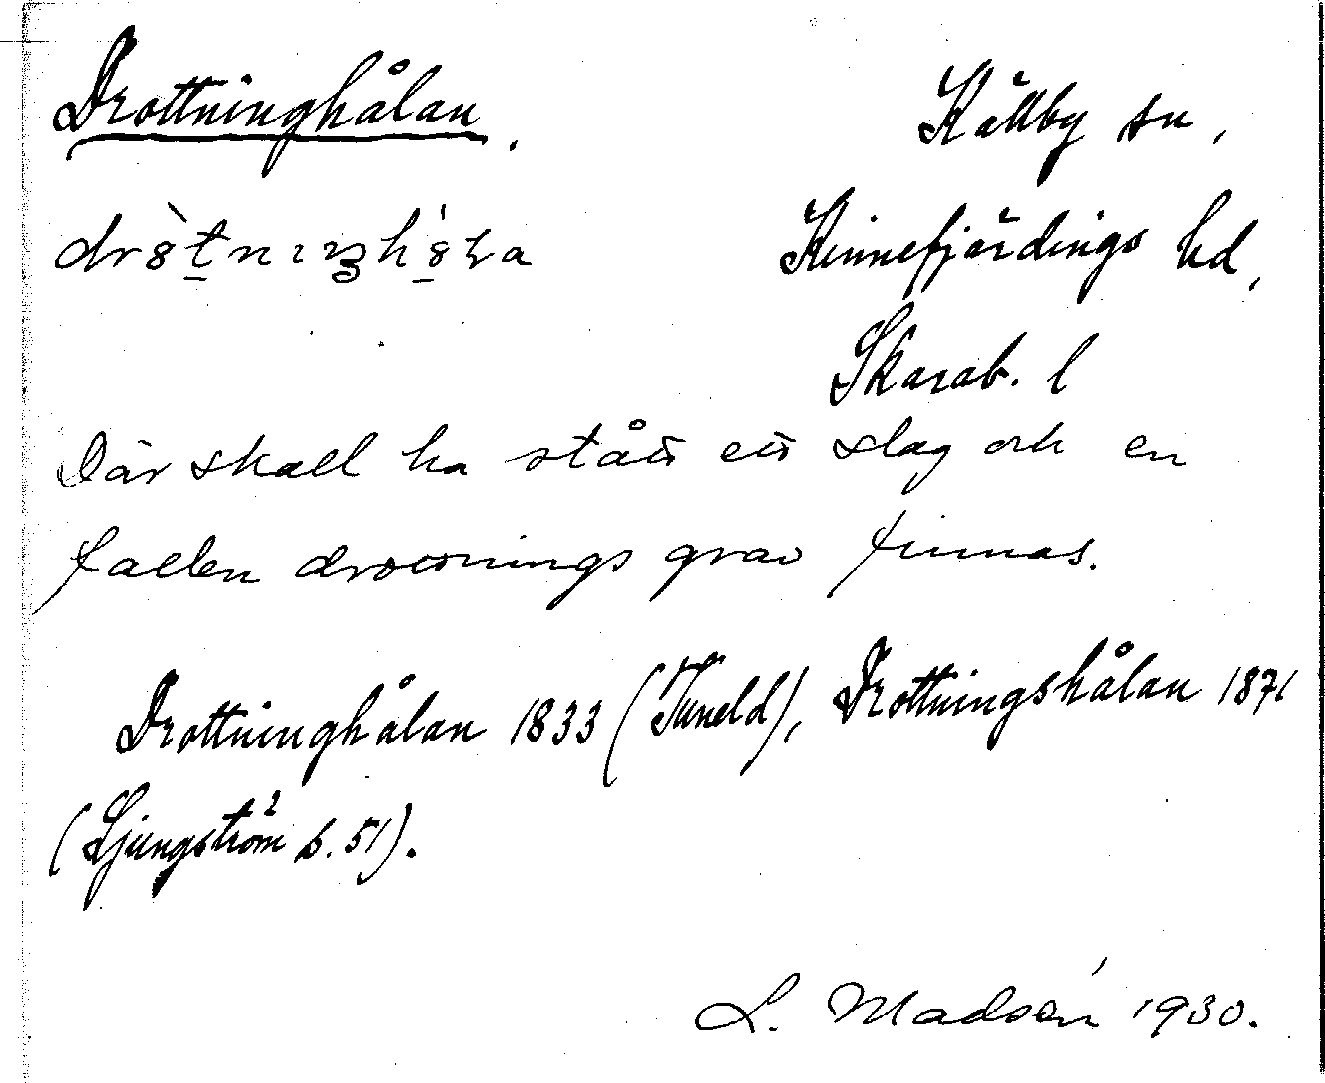 Drottninghålan.
Källby sn,
Kinnefjärdings hd,
Skarab. l
Där skall ha stått ett slag och en
fallen drottnings grav finnas.
Drottninghålan 1833 (Tuneld), Drottningshålan 1871
(Ljungström² s. 51).
L. Madsén 1930.